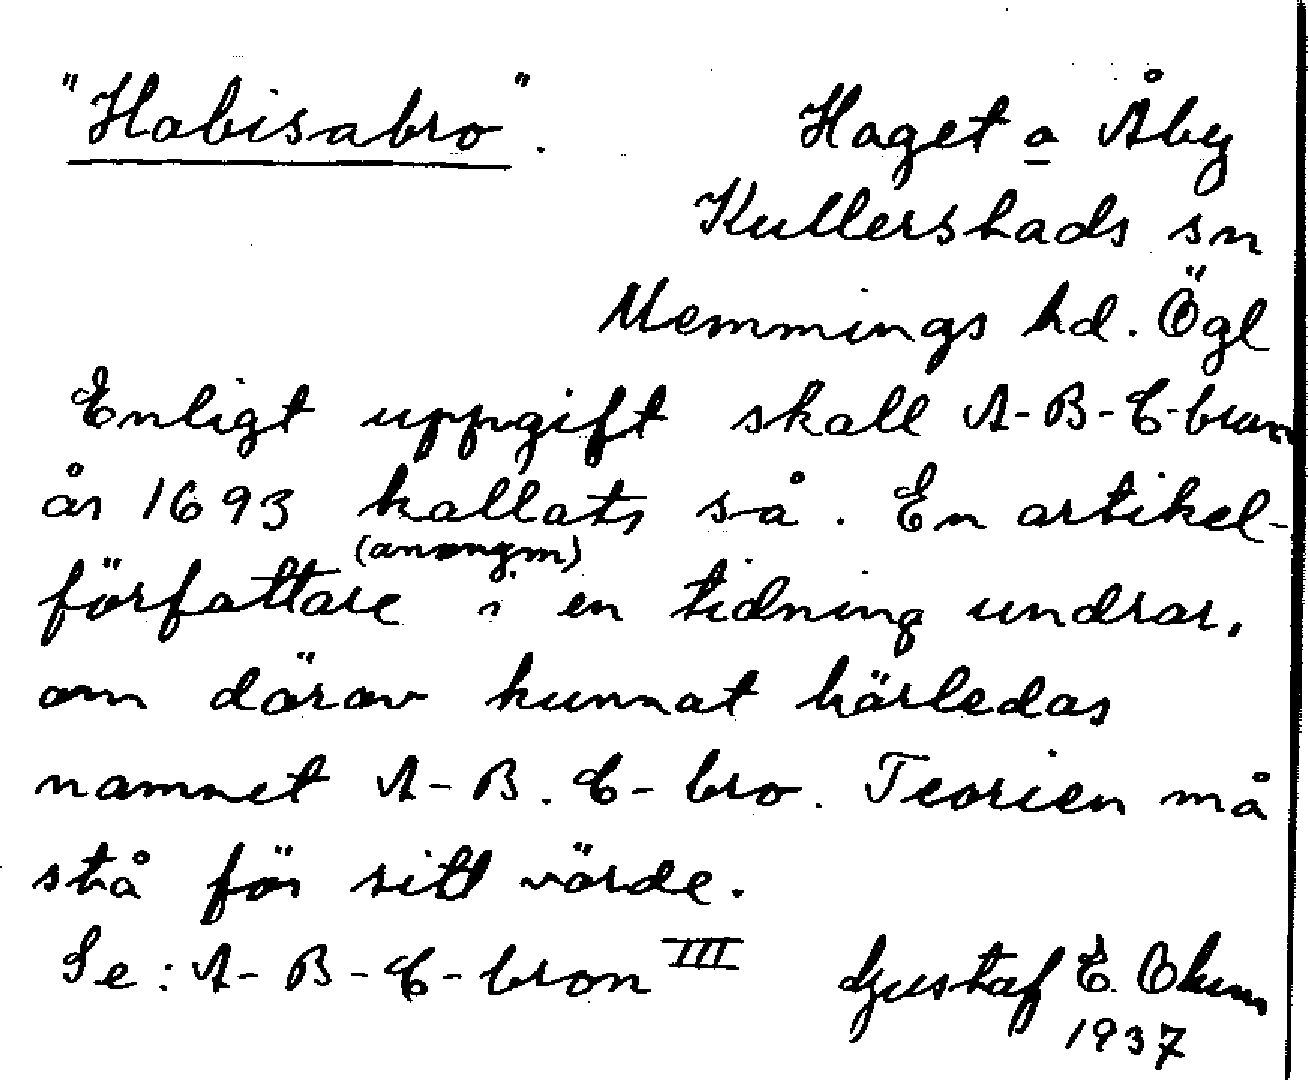 "Habisabro".
Haget o Åby
Kullerstads sn
Memmings hd. Ögl
Enligt uppgift skall A-B-C-bron
år 1693 kallats så. En artikel-
(anonym)
författare i en tidning undrar,
om därav kunnat härledas
namnet A-B.C-bro. Teorien må
stå för sitt värde.
Se: A-B-C-bron III
Gustaf E.
1937